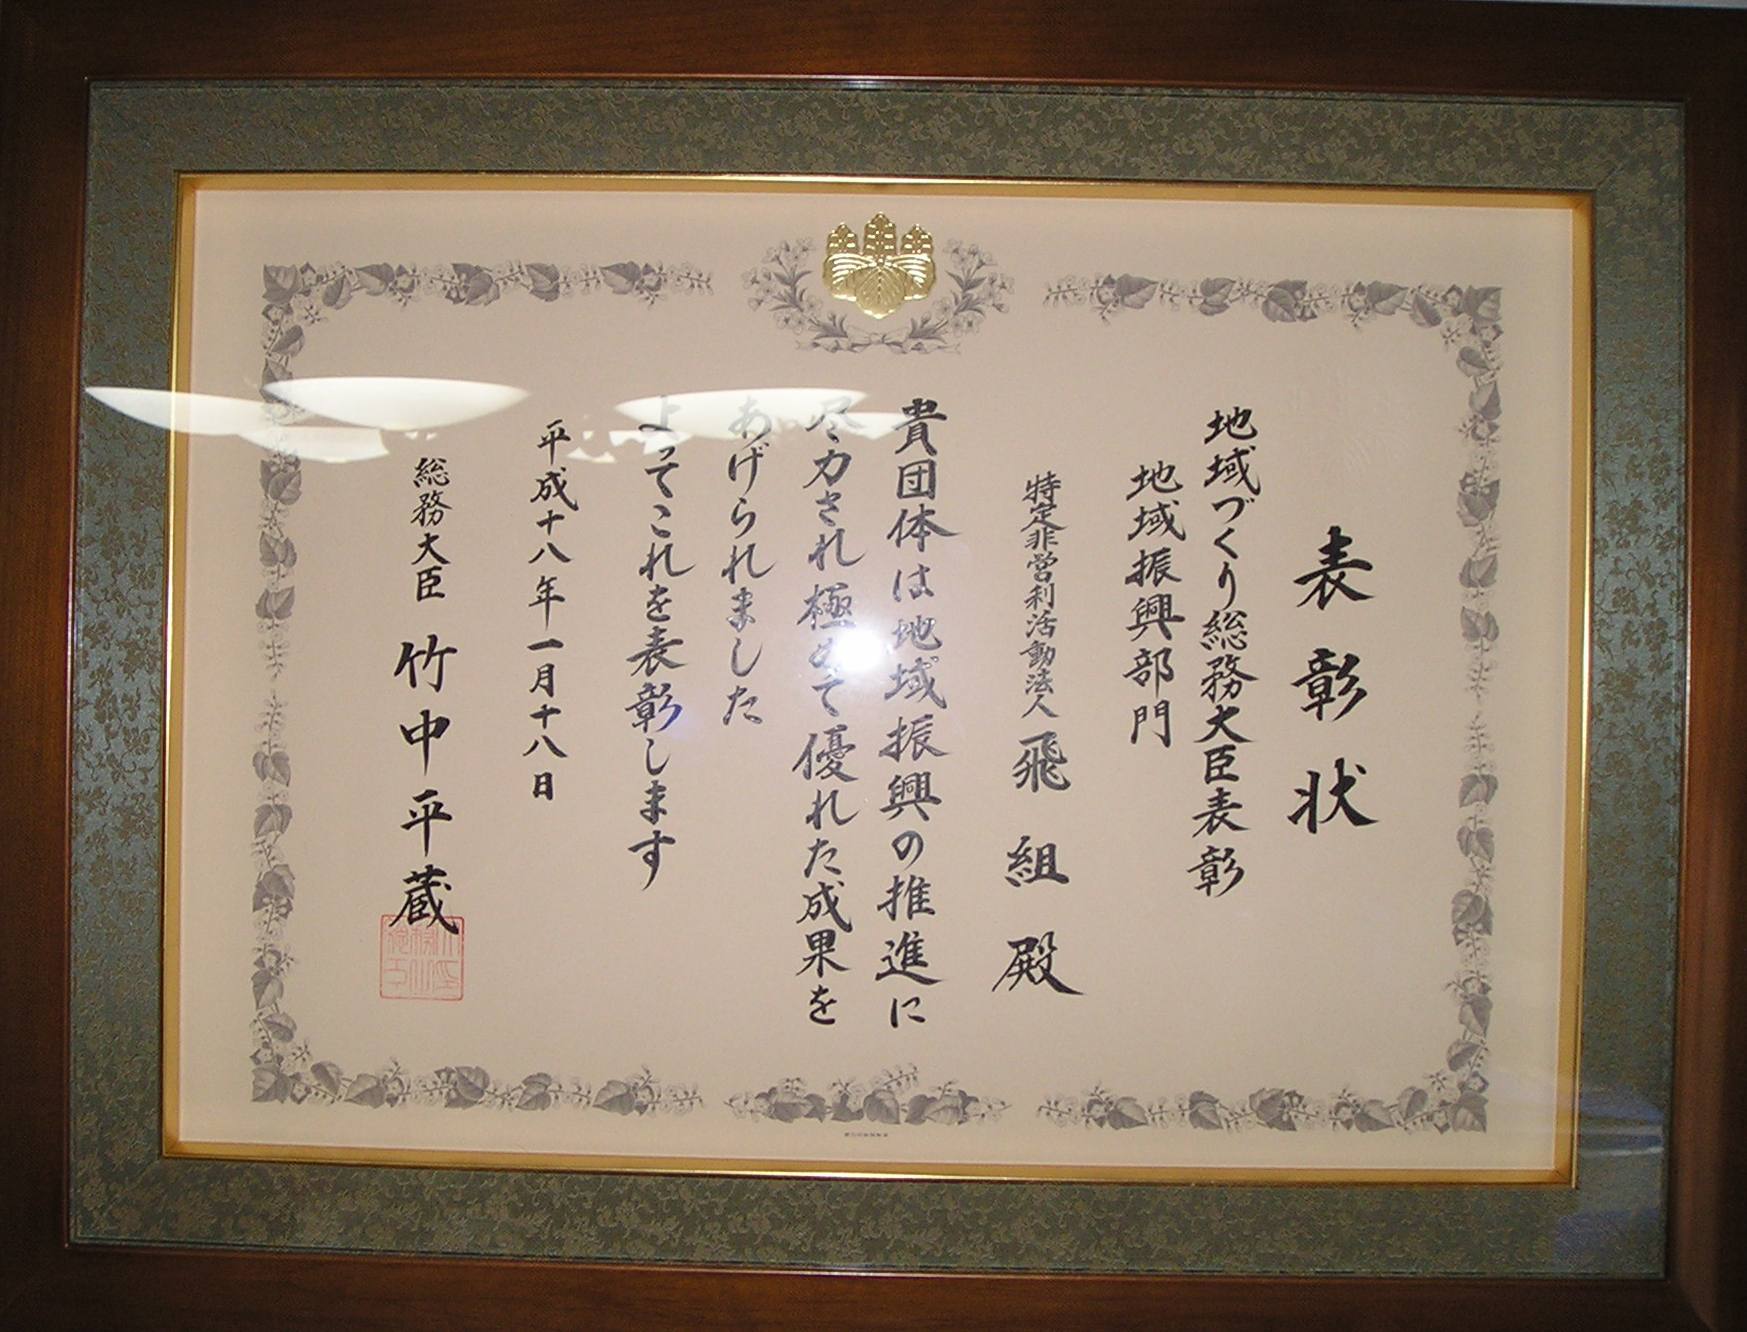 表彰状
地域づくり総務大臣表彰
地域振興部門
特定非営利活動法人 飛組殿
貴団体は地域振興の推進に
尽力され極めて優れた成果を
あげられました
よってこれを表彰します
平成十八年一月十八日
総務大臣 竹中平蔵